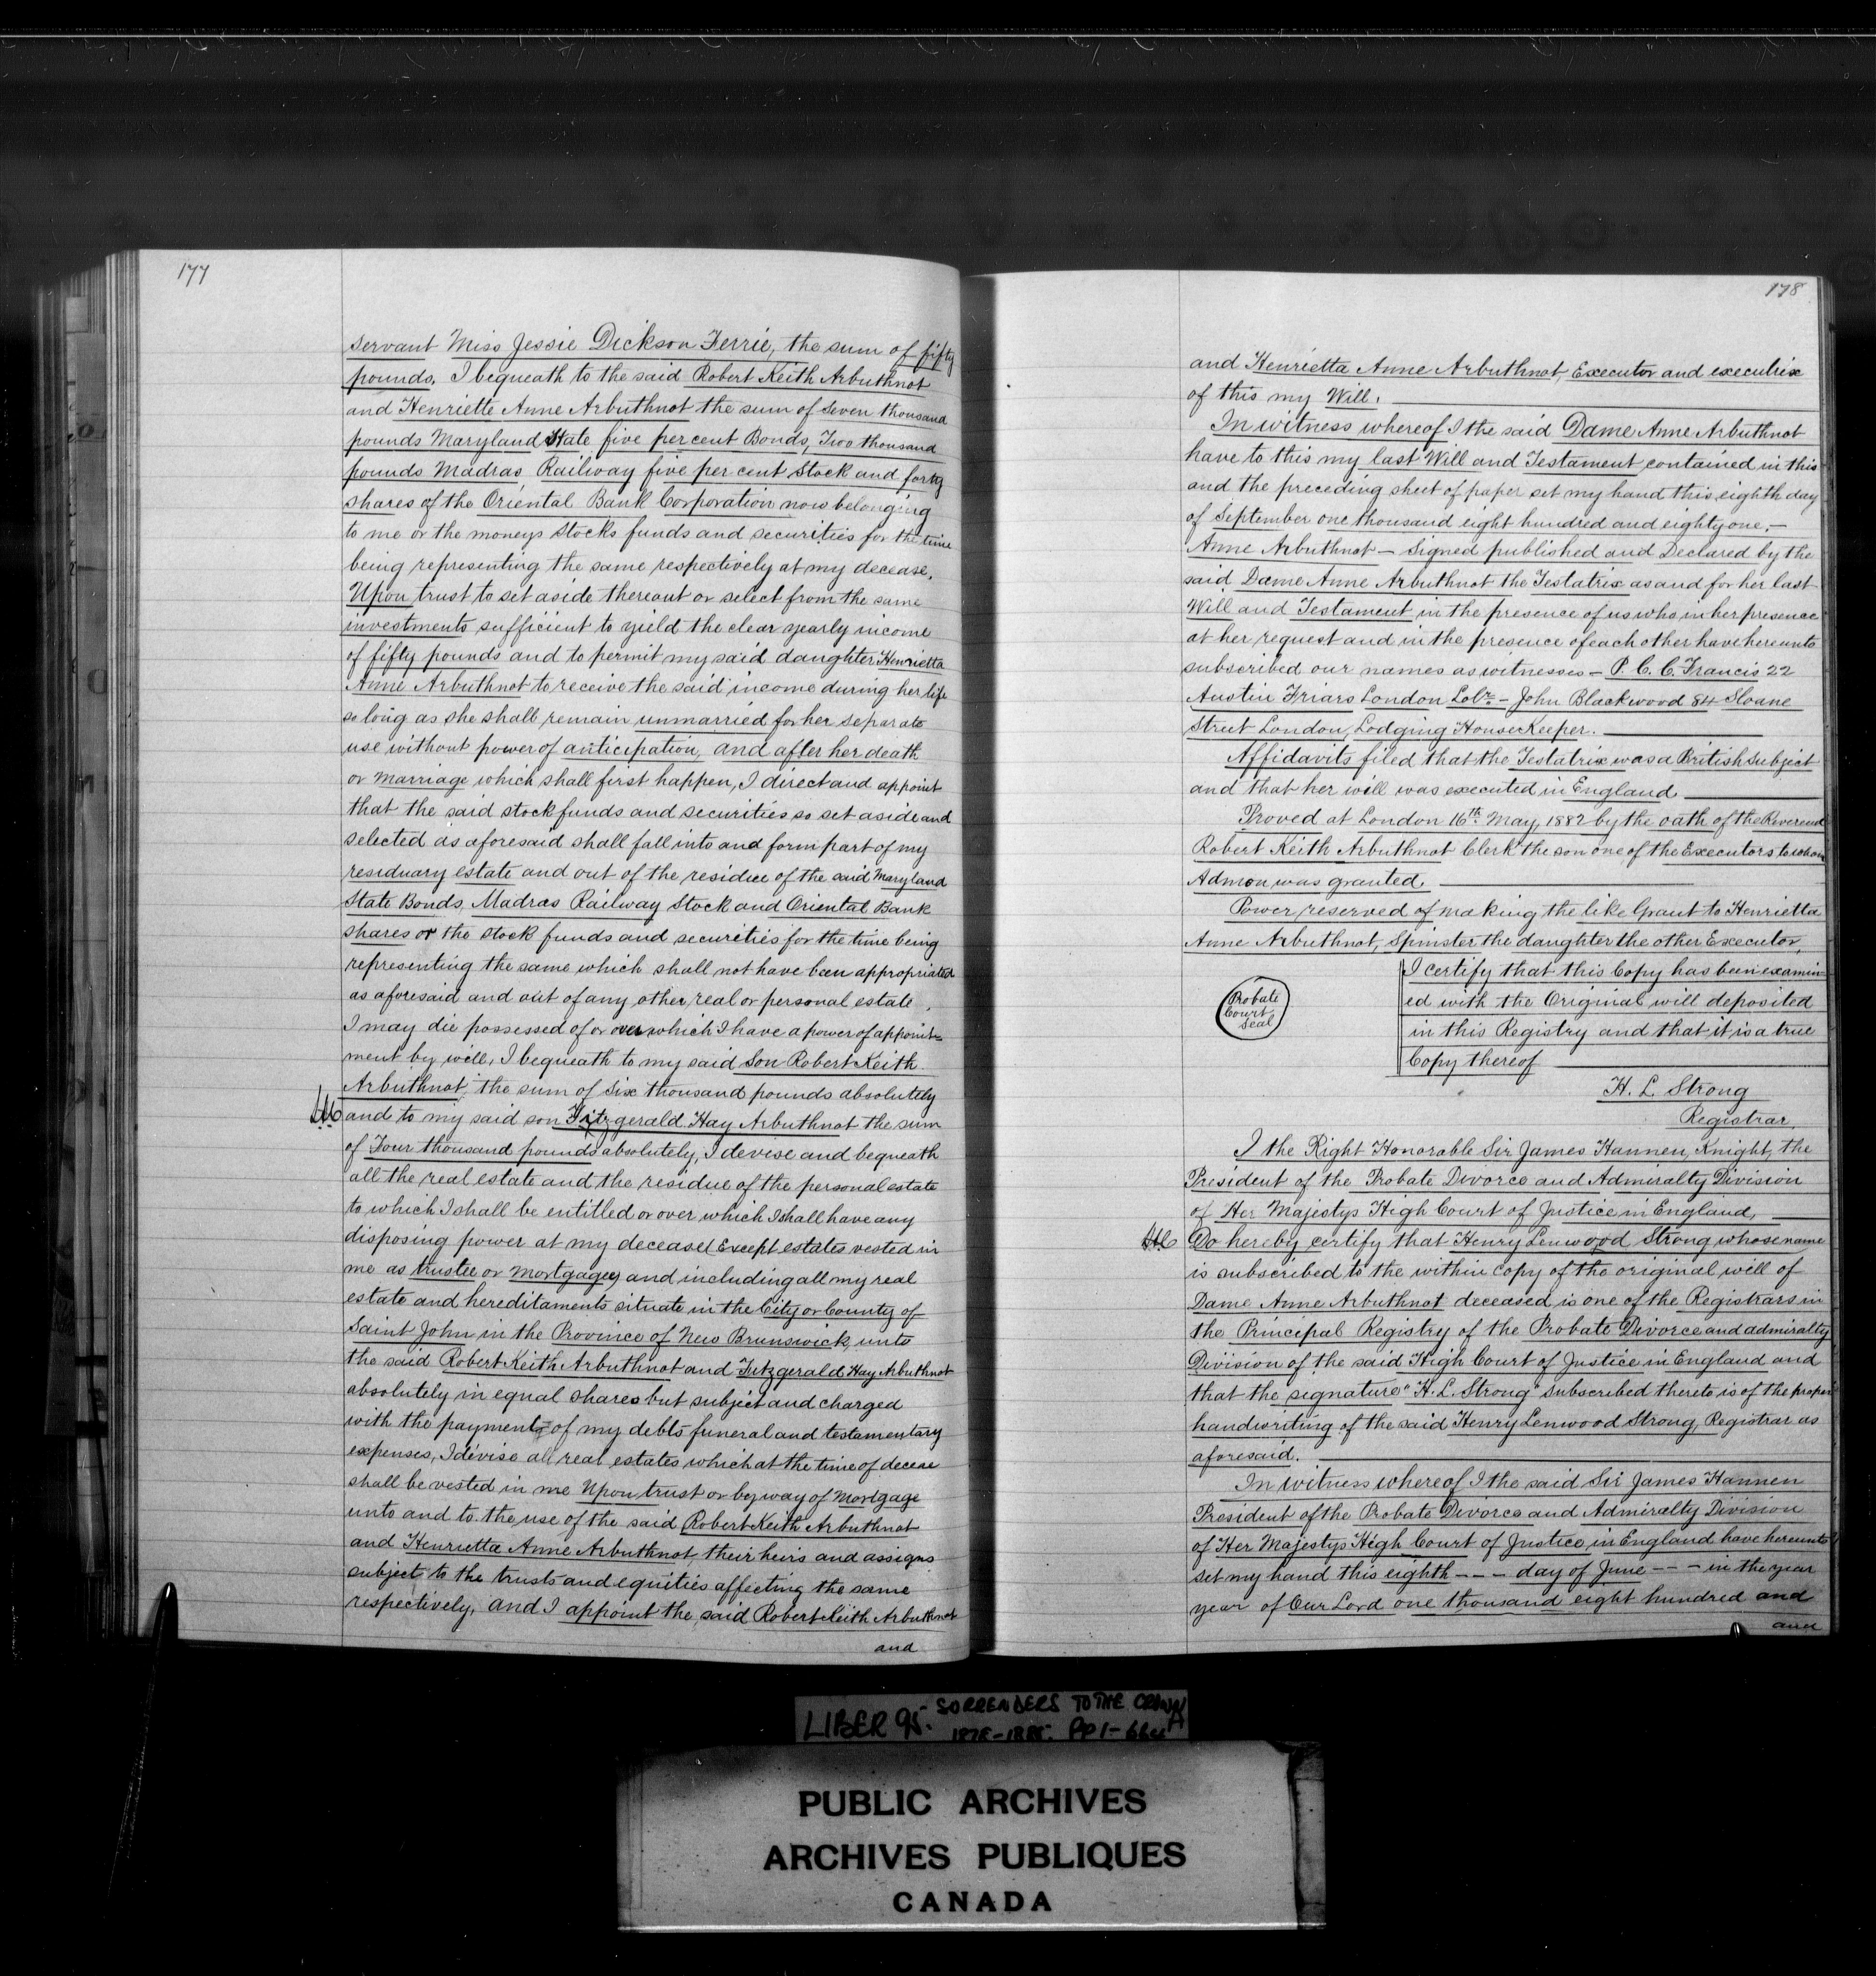 177
servant Miss Jessie Dickson Ferrie, the sum of fifty
pounds. I bequeath to the said Robert Keith Arbuthnot
and Henriette Anne Arbuthnot the sum of Seven thousand
pounds Maryland State five per cent Bonds, Two thousand
pounds Madras Railway five per cent Stock and forty
shares of the Oriental Bank Corporation now belonging
to me or the moneys stocks funds and securities for the time
being representing the same respectively at my decease.
Upon trust to set aside thereout or select from the same
investments sufficient to yield the clear yearly income
of fifty pounds and to permit my said daughter Henrietta
Anne Arbuthnot to receive the said income during her life
so long as she shall remain unmarried for her separate
use without power of anticipation, and after her death
or marriage which shall first happen, I direct and appoint
that the said stock funds and securities so set aside and
selected as aforesaid shall fall into and form part of my
residuary estate and out of the residue of the said Maryland
State Bonds, Madras Railway Stock and Oriental Bank
shares or the stock funds and securities for the time being
representing the same which shall not have been appropriated
as aforesaid and out of any other real or personal estate
I may die possessed of or over which I have a power of appoint=
ment by will, I bequeath to my said Son Robert Keith
Arbuthnot, the sum of Six thousand pounds absolutely
and to my said son Fitzgerald Hay Arbuthnot the sum
of Four thousand pounds absolutely, I devise and bequeath
all the real estate and the residue of the personal estate
to which I shall be entitled or over which I shall have any
disposing power at my decease (Except estates vested in
me as trustee or Mortgagee) and including all my real
estate and hereditaments situate in the City or County of
Saint John in the Province of New Brunswick, unto
the said Robert Keith Arbuthnot and Fitzgerald Hay Arbuthnot
absolutely in equal shares but subject and charged
with the payment of my debts funeral and testamentary
expenses, I devise all real estates which at the time of decease
shall be vested in me Upon trust or by way of Mortgage
unto and to the use of the said Robert Keith Arbuthnot
and Henrietta Anne Arbuthnot, their heirs and assigns
subject to the trusts and equities affecting the same
respectively, and I appoint the said Robert Keith Arbuthnot
and
178
and Henrietta Anne Arbuthnot, Executor and executrix
of this my Will.
In witness whereof I the said Dame Anne Arbuthnot
have to this my last Will and Testament contained in this
and the preceding sheet of paper set my hand this eighth day
of September one thousand eight hundred and eighty one. —
Anne Arbuthnot — Signed published and Declared by the
said Dame Anne Arbuthnot the Testatrix as and for her last
Will and Testament in the presence of us who in her presence
at her request and in the presence of each other have hereunto
subscribed our names as witnesses — P. C. C. Francis 22
Austin Friars London Solr. — John Blackwood 84 Sloane
Street London, Lodging House Keeper.
Affidavits filed that the Testatrix was a British subject
and that her will was executed in England
Proved at London 16th May, 1882 by the oath of the Reverend
Robert Keith Arbuthnot Clerk the son one of the Executors to whom
Admon was granted.
Power reserved of making the like Grant to Henrietta
Anne Arbuthnot, Spinster the daughter the other Executor,
Probate
Court
Seal
I certify that this Copy has been examin
ed with the Original will deposited
in this Registry and that it is a true
Copy thereof
H. L. Strong
Registrar.
I the Right Honorable Sir James Hannen, Knight, the
President of the Probate Divorce and Admiralty Division
of Her Majestys High Court of Justice in England,
Do hereby certify that Henry Lenwood Strong whose name
is subscribed to the within copy of the original will of
Dame Anne Arbuthnot deceased is one of the Registrars in
the Principal Registry of the Probate Divorce and admiralty
Division of the said High Court of Justice in England and
that the signature "H. L. Strong" subscribed thereto is of the proper
handwriting of the said Henry Lenwood Strong, Registrar as
aforesaid.
In witness whereof I the said Sir James Hannen
President of the Probate Divorce and Admiralty Division
of Her Majestys High Court of Justice in England have hereunto
set my hand this eighth - - - day of June - - - in the year
year of Our Lord one thousand eight hundred and
and
LIBER 95. SORRENDERS TO THE CROWN
1878-1885. PP 1-664A
PUBLIC ARCHIVES
ARCHIVES PUBLIQUES
CANADA